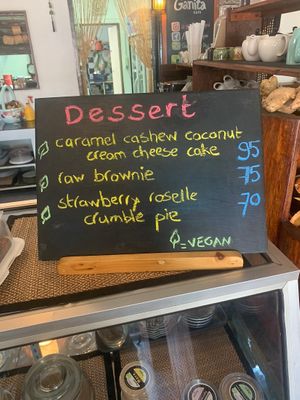 Ganita
Dessert
caramel cashew coconut
cream cheese cake 95
raw brownie 75
strawberry roselle
crumble pie 70
= VEGAN